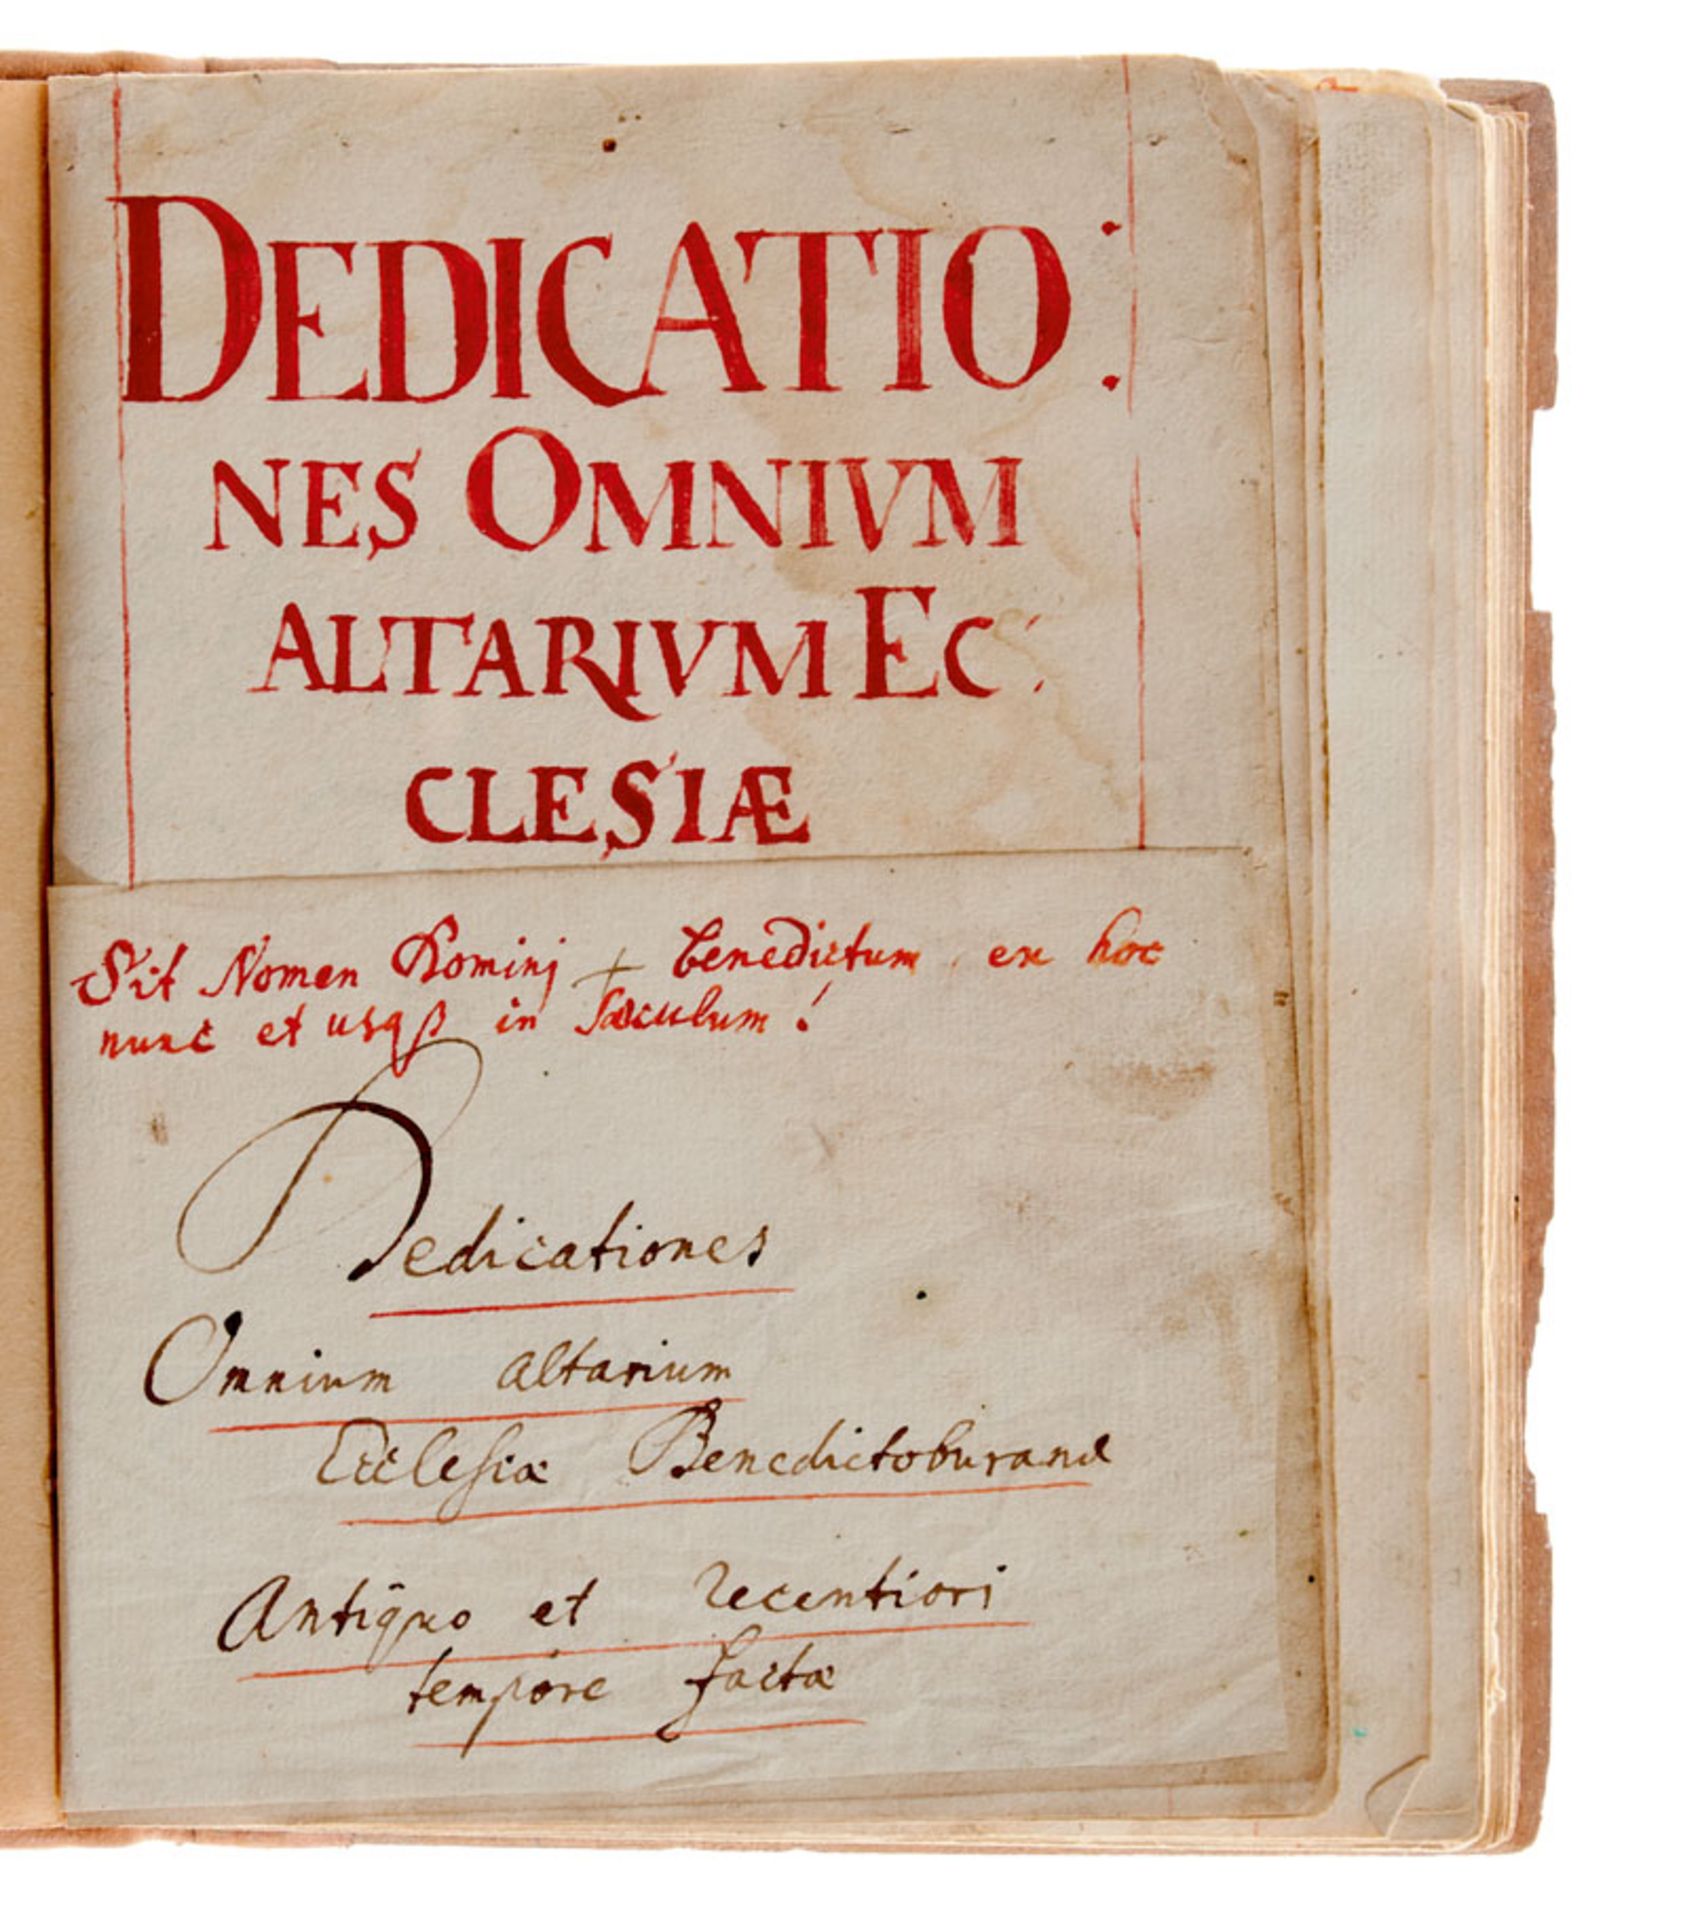 DEDICATIO:
NES OMNIVM
ALTARIVM EC:
CLESIÆ
Sit Nomen Dominj + benedictum ex hoc
nunc et usqß in sæculum!
Dedicationes
Omnium altarium
Ecclesiæ Benedictoburanæ
Antiquo et recentiori
tempore factæ